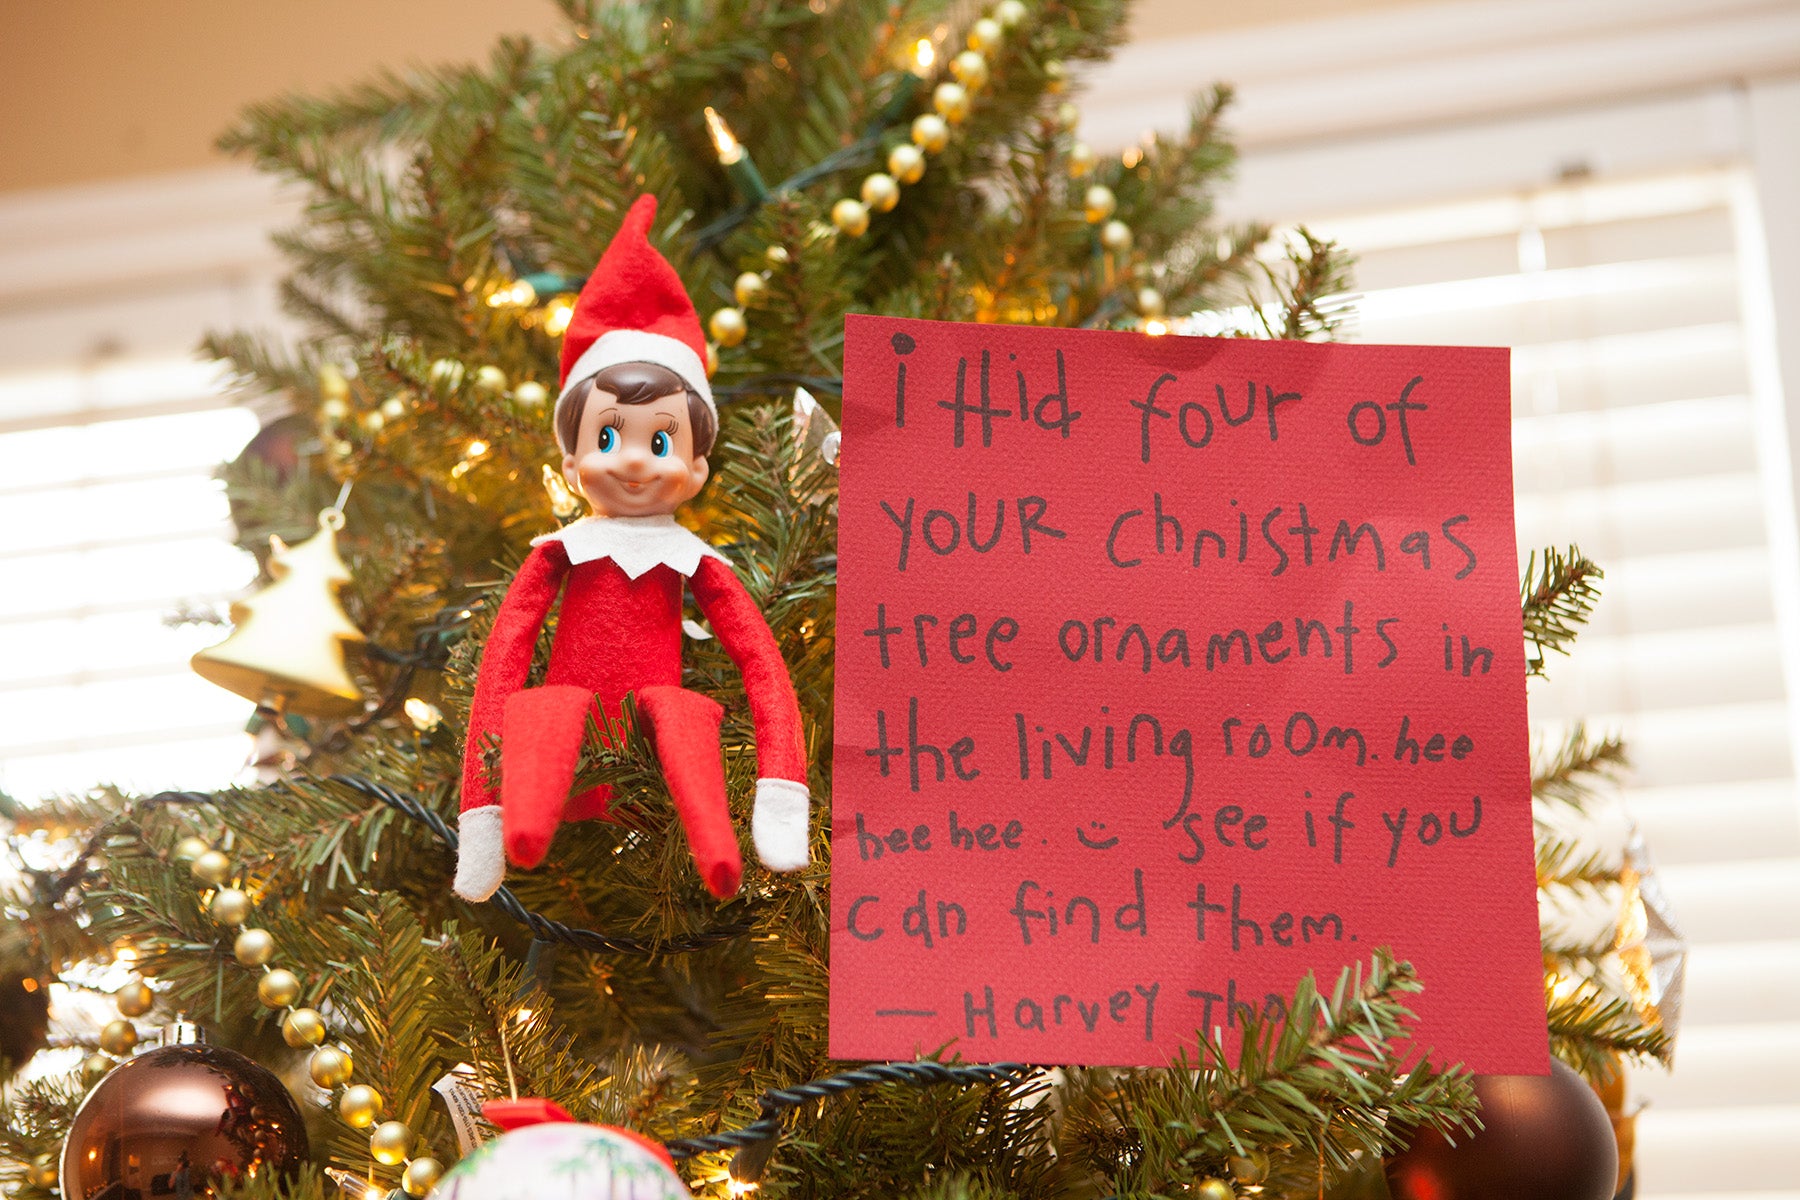 i Hid four of
YOUR christmas
tree ornaments in
the living room. hee
hee hee. :) see if you
can find them.
— Harvey